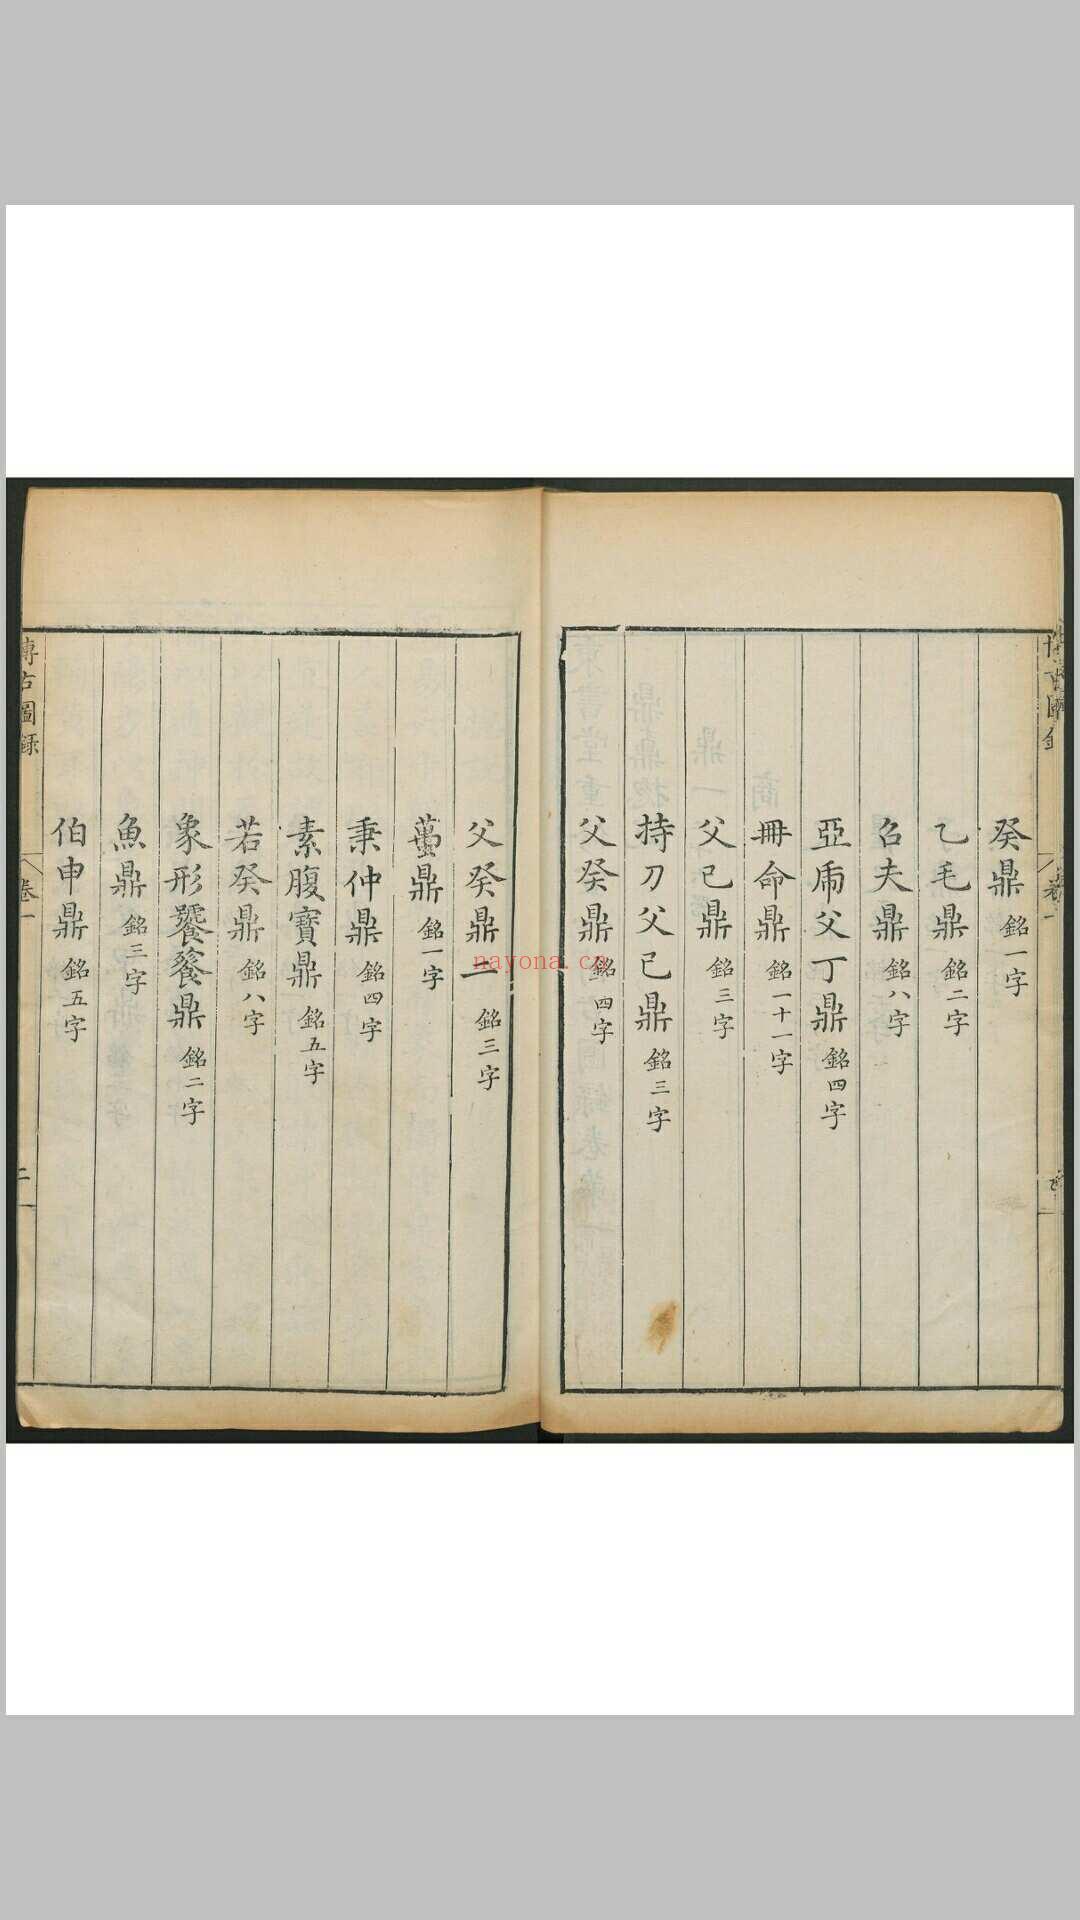 癸鼎 銘一字
乙毛鼎 銘二字
召夫鼎 銘八字
亞虎父丁鼎 銘四字
冊命鼎 銘一十一字
父己鼎 銘三字
持刀父己鼎 銘三字
父癸鼎 銘四字
父癸鼎一 銘三字
鼎 銘一字
秉仲鼎 銘四字
素腹寶鼎 銘五字
若癸鼎 銘八字
象形饕餮鼎 銘二字
魚鼎 銘三字
伯申鼎 銘五字
博古圖錄
卷一
二
nayona.cn